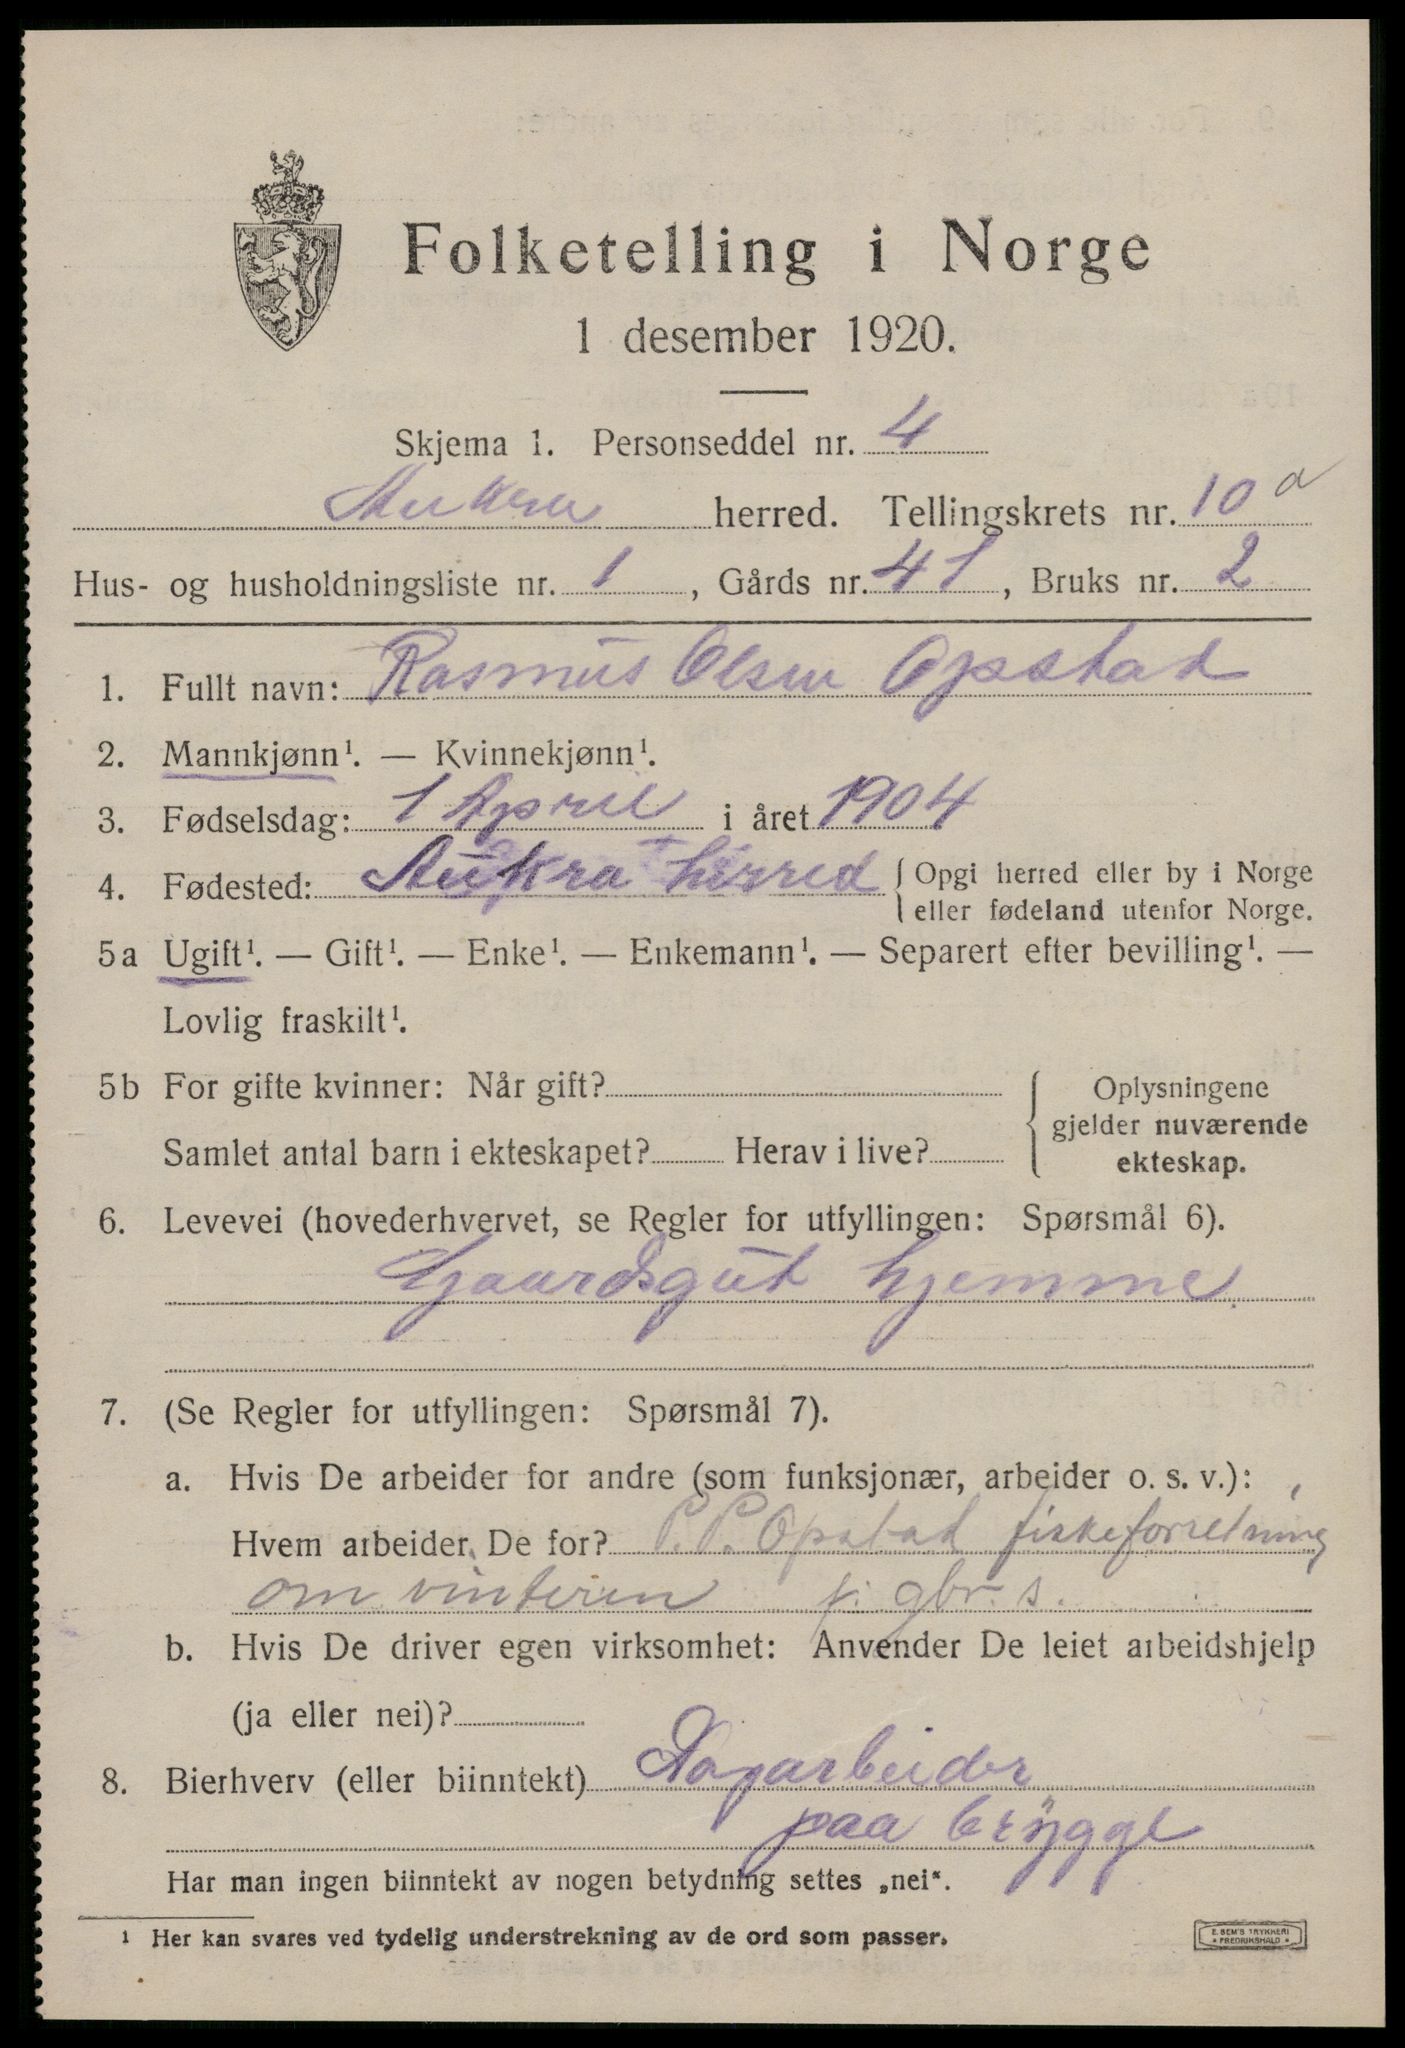 Folketelling i Norge
1 desember 1920.
Skjema 1. Personseddel nr. 4
Aukra herred. Tellingskrets nr. 10 a
Hus- og husholdningsliste nr. 1, Gårds nr. 41, Bruks nr. 2
1. Fullt navn: Rasmus Olsen Opstad
2. Mannkjønn¹. — Kvinnekjønn¹.
3. Fødselsdag: 1 April i året 1904
4. Fødested: Aukra herred { Opgi herred eller by i Norge
eller fødeland utenfor Norge.
5a Ugift¹. — Gift¹. — Enke¹. — Enkemann¹. — Separert efter bevilling¹. —
Lovlig fraskilt¹.
5b For gifte kvinner: Når gift?
Samlet antal barn i ekteskapet? Herav i live?
{ Oplysningene
gjelder nuværende
ekteskap.
6. Levevei (hovederhvervet, se Regler for utfyllingen: Spørsmål 6).
Gaardsgut hjemme
7. (Se Regler for utfyllingen: Spørsmål 7).
a. Hvis De arbeider for andre (som funksjonær, arbeider o. s. v.):
Hvem arbeider De for? P. P. Opstad fiskeforretning
om vinteren f. gbr. s.
b. Hvis De driver egen virksomhet: Anvender De leiet arbeidshjelp
(ja eller nei)?
8. Bierhverv (eller biinntekt) Dagarbeider
paa brygge
Har man ingen biinntekt av nogen betydning settes „nei".
¹ Her kan svares ved tydelig understrekning av de ord som passer.
E. SEM'S TRYKKERI
* FREDRIKSHALD *